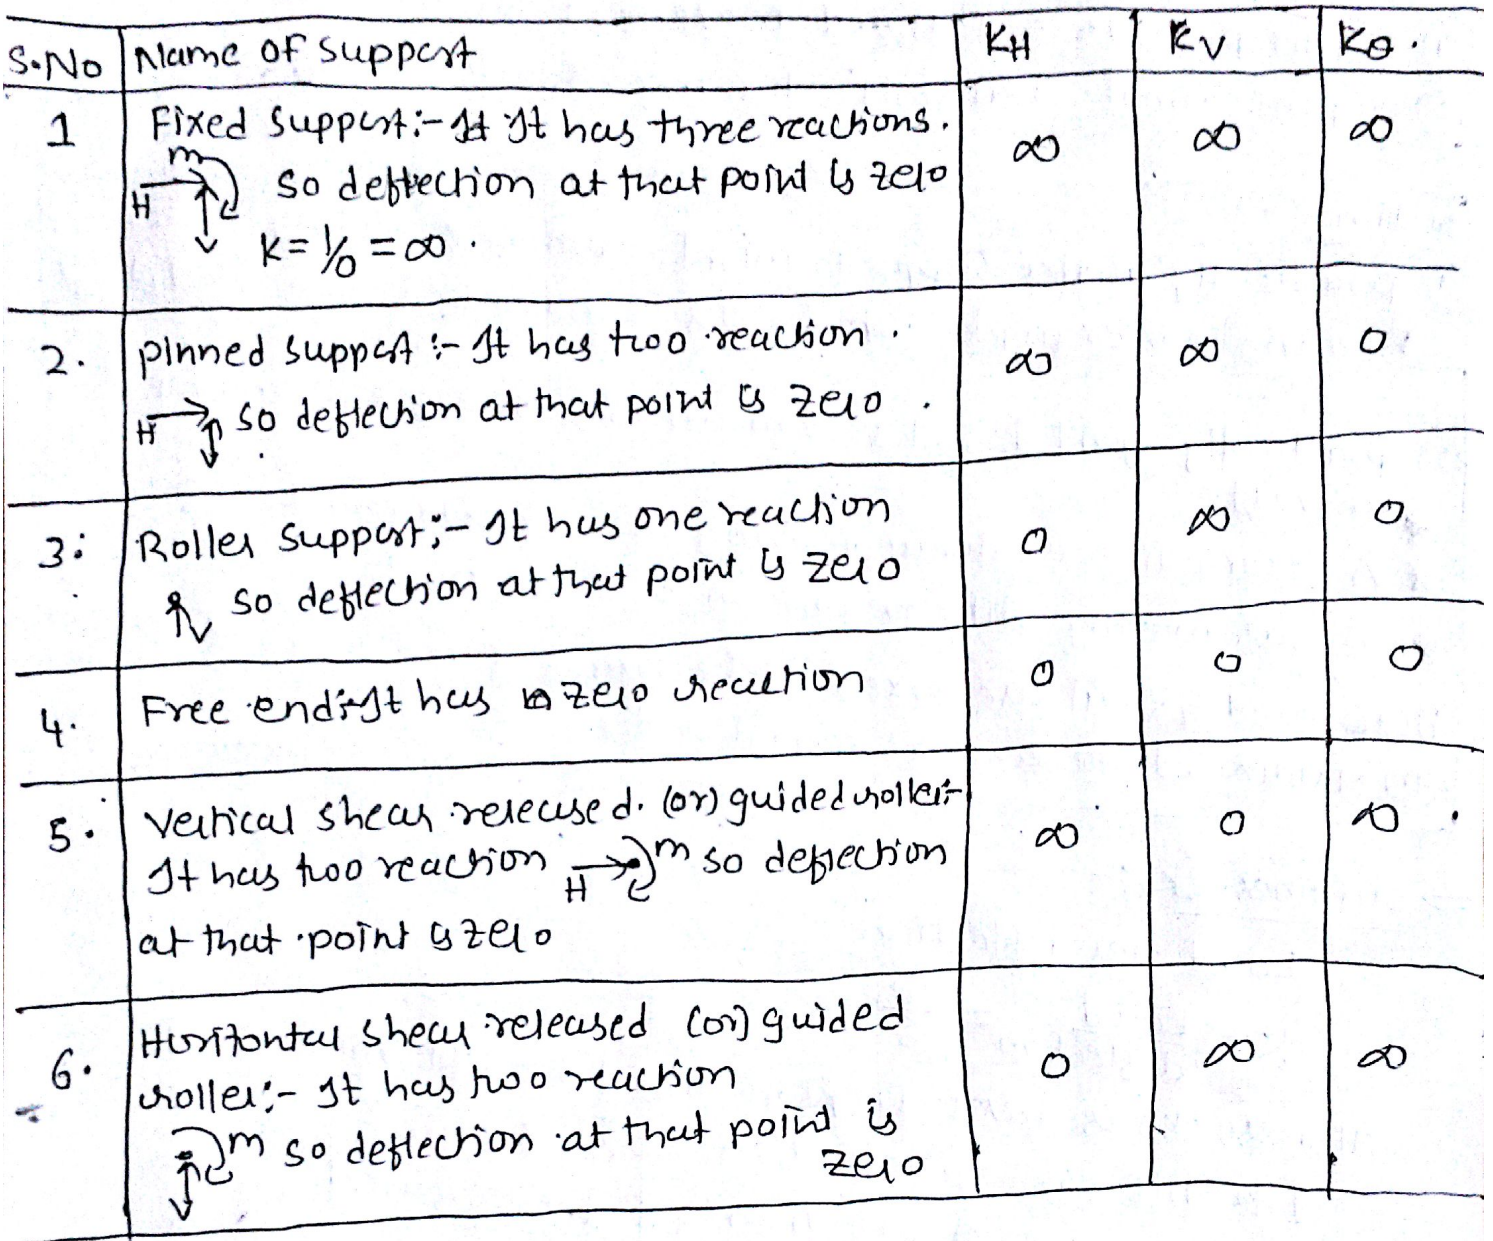 S.No Name of support KH KV Kθ.
1 Fixed support:- It has three reactions. ∞ ∞ ∞
m
H so deflection at that point is zero
V K = 1/0 = ∞.
2. pinned support :- It has two reaction. ∞ ∞ 0
H so deflection at that point is zero.
V
3. Roller support:- It has one reaction 0 ∞ 0
V so deflection at that point is zero
4. Free end:- It has zero reaction 0 0 0
5. Vertical shear released. (or) guided roller:- ∞ 0 ∞
It has two reaction H m so deflection
at that point is zero
6. Horizontal shear released (or) guided 0 ∞ ∞
roller:- It has two reaction
m so deflection at that point is
V zero